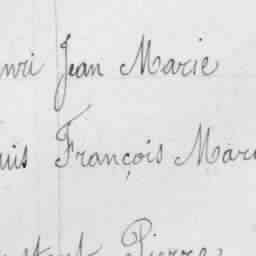 nri Jean Marie
uis François Mari
Pierre